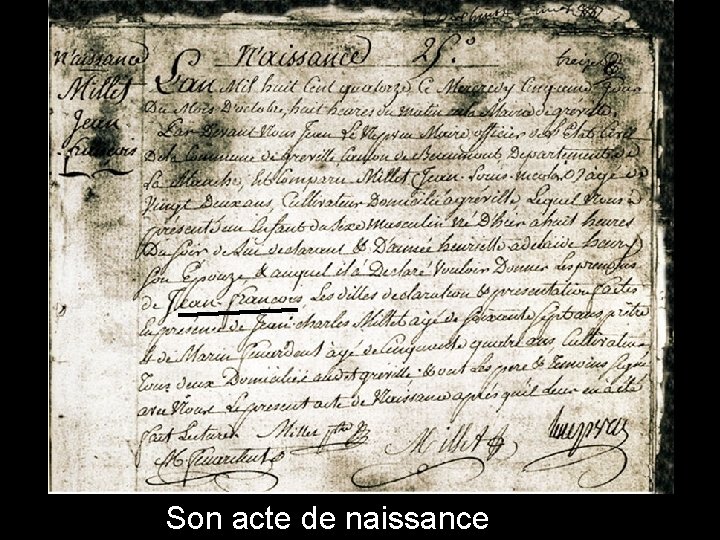 Naissance
Millet
Jean
francois
Naissance 25.°
L'an Mil huit Cent quatorze Ce Mercredy Cinquieme Jour
Du Mois D'octobre, huit heures du matin a la Mairie de greville.
Par Devant Nous Jean Le Maire officier de L'Etat Civil
De la Commune de greville Canton de Beaumont, Departement de
La Manche, Est Comparu Millet Jean Louis Nicolas Agé de
Vingt Deux ans, Cultivateur Domicilié a gréville, Lequel Nous a
présenté un Enfant du Sexe Masculin Né D'hier a huit heures
Du Soir de Lui declarant & D'aimée henriette adelaide henry
Son Epouze & auquel il a Déclaré Vouloir Donner Les prenoms
de Jean francois, Les dittes declaration & presentation faites
En presence de Jean charles Millet agé de Soixante Sept ans prêtre
et de Marin fleurdent agé de Cinquante quatre ans Cultivateur
Tous deux Domiciliés audt greville & ont Les pere & Temoins Signé
avec Nous Le present acte de Naissance après qu'il Leur en a été
fait Lecture Millet ptre
Millet
Son acte de naissance